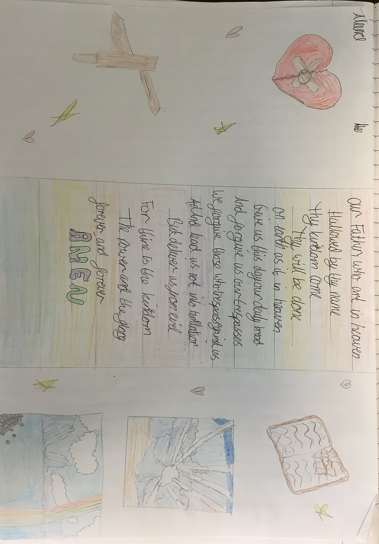 Our Father who art in heaven
Hallowed by thy name
Thy kingdom come
Thy will be done
On earth as it in heaven
Give us this day our daily bread
And forgive us our trespasses
We forgive those who trespass against us
And lead us not into temtation
But deliver us from evil
For thine is the kingdom
The power and the glory
forever and forever
AMEN